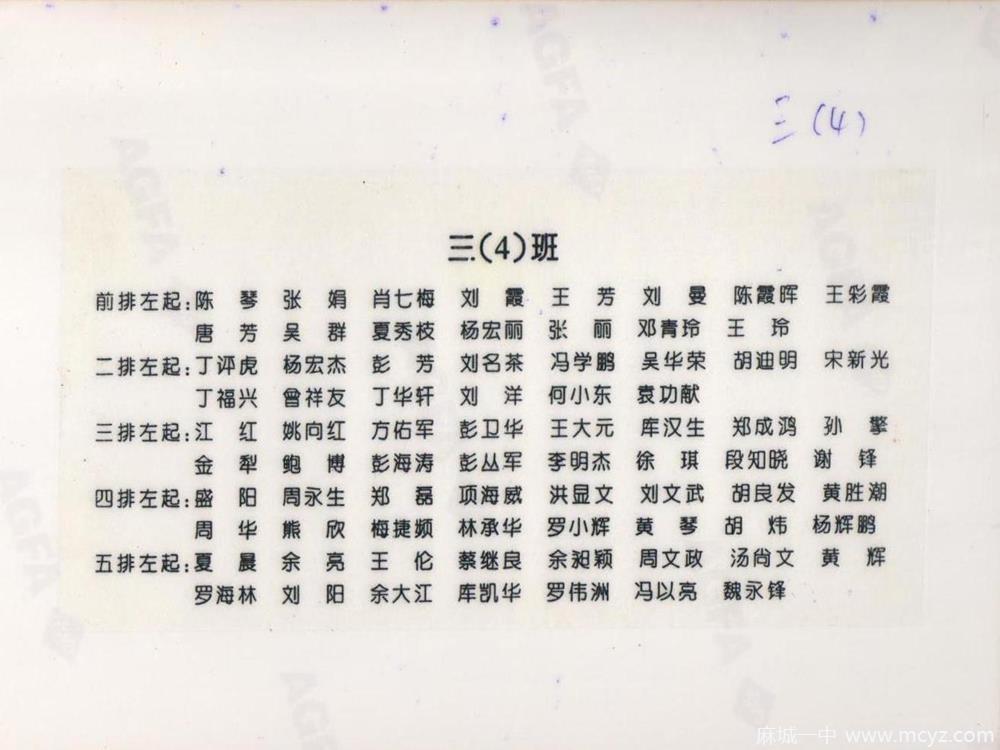 三(4)
三(4)班
前排左起:陈 琴 张 娟 肖七梅 刘 霞 王 芳 刘 曼 陈霞晖 王彩霞
唐 芳 吴 群 夏秀枝 杨宏丽 张 丽 邓青玲 王 玲
二排左起:丁评虎 杨宏杰 彭 芳 刘名茶 冯学鹏 吴华荣 胡迪明 宋新光
丁福兴 曾祥友 丁华轩 刘 洋 何小东 袁功献
三排左起:江 红 姚向红 方佑军 彭卫华 王大元 库汉生 郑成鸿 孙 擎
金 犁 鲍 博 彭海涛 彭丛军 李明杰 徐 琪 段知晓 谢 锋
四排左起:盛 阳 周永生 郑 磊 项海威 洪显文 刘文武 胡良发 黄胜潮
周 华 熊 欣 梅捷频 林承华 罗小辉 黄 琴 胡 炜 杨辉鹏
五排左起:夏 晨 余 亮 王 伦 蔡继良 余昶颖 周文政 汤尚文 黄 辉
罗海林 刘 阳 余大江 库凯华 罗伟洲 冯以亮 魏永锋
AGFA
AGFA
AGFA
AGFA
AGFA
AGFA
AGFA
麻城一中 www.mcyz.com